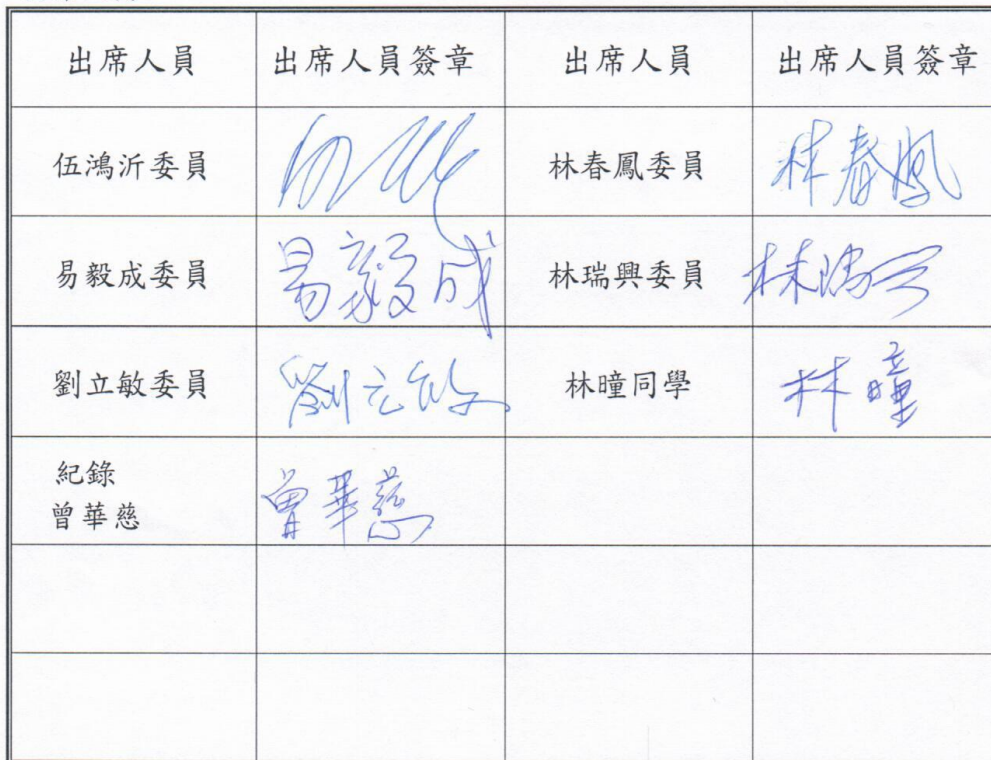 出席人員 出席人員簽章 出席人員 出席人員簽章
伍鴻沂委員 林春鳳委員 林春鳳
易毅成委員 易毅成 林瑞興委員 林瑞興
劉立敏委員 劉立敏 林曈同學 林曈
紀錄
曾華慈 曾華慈